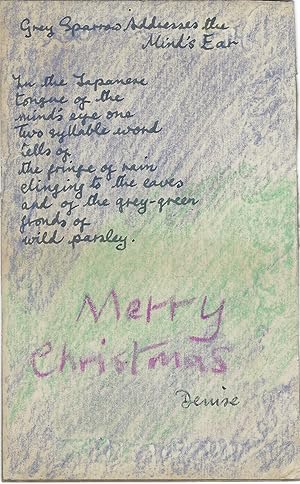 Grey Sparrow Addresses the
Mind's Ear
In the Japanese
tongue of the
mind's eye one
two syllable word
tells of
the fringe of rain
clinging to the eaves
and of the grey-green
fronds of
wild parsley.
Merry
Christmas
Denise